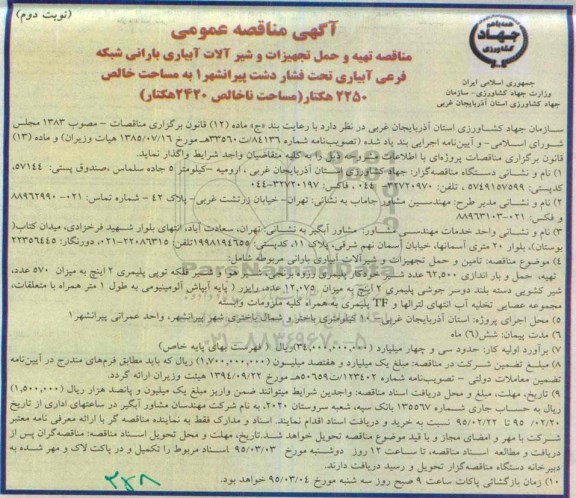 (نوبت دوم)
آگهی مناقصه عمومی
همه با هم
جهاد
کشاورزی
جمهوری اسلامی ایران
وزارت جهاد کشاورزی- سازمان
جهاد کشاورزی استان آذربایجان غربی
مناقصه تهیه و حمل تجهیزات و شیر آلات آبیاری بارانی شبکه
فرعی آبیاری تحت فشار دشت پیرانشهر۱ به مساحت خالص
۲۲۵۰ هکتار(مساحت ناخالص ۲۴۲۰هکتار)
سازمان جهاد کشاورزی استان آذربایجان غربی در نظر دارد با رعایت بند «ج» ماده (۱۲) قانون برگزاری مناقصات - مصوب ۱۳۸۳ مجلس
شورای اسلامی- و آیین‌نامه اجرایی بند یاد شده (تصویب‌نامه شماره ۸۴۱۳۶/ت۳۳۵۶۰هـ مورخ ۱۳۸۵/۰۷/۱۶ هیات وزیران) و ماده (۱۳)
قانون برگزاری مناقصات پروژه‌ای با اطلاعات مشروحه ذیل را به کلیه متقاضیان واجد شرایط واگذار نماید.
۱) نام و نشانی دستگاه مناقصه‌گزار: جهاد کشاورزی استان آذربایجان غربی ، ارومیه -کیلومتر ۵ جاده سلماس ،صندوق پستی: ۵۷۱۴۴،
کدپستی: ۵۷۴۹۱۵۷۵۹۹ ، تلفن: ۳۲۷۲۰۹۷۰-۰۴۴ ، فاکس: ۳۲۷۲۰۱۹۷-۰۴۴
۲) نام و نشانی مدیر طرح: مهندسین مشاور جاماب به نشانی: تهران- خیابان زرتشت غربی- پلاک ۴۲ - شماره تماس: ۰۲۱- ۸۸۹۶۲۹۹۰
و فکس: ۰۲۱-۸۸۹۶۳۱۰۳
۳) نام و نشانی واحد خدمات مهندسی مشاور: مشاور آبگیر به نشانی: تهران، سعادت آباد، انتهای بلوار شهید فرحزادی، میدان کتاب(
بوستان)، بلوار ۲۰ متری آسمانها، خیابان آسمان نهم شرقی، پلاک ۱۱، کدپستی: ۱۹۹۸۱۹۴۶۵۵تلفن: ۲۲۰۸۶۳۱۵-۰۲۱، دورنگار: ۲۲۳۵۶۴۴۵
۴) موضوع مناقصه: تامین و حمل تجهیزات و شیرآلات آبیاری بارانی مربوطه شامل:
تهیه، حمل و بار اندازی ۶۲,۵۰۰ عدد
شیر کشویی دسته بلند دوسر جوشی پلیمری ۲ اینچ به میزان ۱۲,۰۷۵ عدد، رایزر ( پایه آبپاش آلومینیومی به طول ۱ متر همراه با متعلقات،
مجموعه عصایی تخلیه آب انتهای لترالها و TF پلیمری به همراه کلیه ملزومات وابسته
۵) محل اجرای پروژه: استان آذربایجان غربی- ۱۰ کیلومتری باختر و شمال باختری شهر پیرانشهر، واحد عمرانی پیرانشهر۱
۶) مدت پیمان: شش(۶) ماه
۷) برآورد اولیه کار: حدود سی و چهار میلیارد (۳۴,۰۰۰,۰۰۰,۰۰۰)ریال ( فهرست بهای پایه خاص)
۸) مبلغ تضمین شرکت در مناقصه: مبلغ یک میلیارد و هفتصد میلیون (۱,۷۰۰,۰۰۰,۰۰۰) ریال که باید مطابق فرم‌های مندرج در آیین‌نامه
تضمین معاملات دولتی – تصویب‌نامه شماره ۱۲۳۴۰۲/ت۵۰۶۵۹هـ مورخ ۱۳۹۴/۰۹/۲۲ هیئت وزیران ارائه گردد.
۹) تاریخ، مهلت، مبلغ و محل دریافت اسناد مناقصه: واجدین شرایط میتوانند ضمن واریز مبلغ یک میلیون و پانصد هزار ریال (۱,۵۰۰,۰۰۰)
ریال به حساب جاری شماره ۱۳۵۵۶۷ بانک سپه، شعبه سروستان ۲۰۲۰، به نام شرکت مهندسان مشاور آبگیر در ساعتهای اداری از تاریخ
۹۵/۰۲/۲۰ تا ۹۵/۰۲/۲۲ نسبت به خرید و دریافت اسناد اقدام نمایند. اسناد و مدارک فقط به نماینده مناقصه گر با ارائه معرفی نامه معتبر
شرکت با مهر و امضای مجاز و با قید موضوع مناقصه تحویل خواهد شد. تاریخ، مهلت و محل تحویل اسناد مناقصه: مناقصه‌گران پس از
دریافت و مطالعه اسناد مناقصه، تا ساعت ۱۲ روز دوشنبه مورخ ۹۵/۰۳/۰۳ اسناد مربوط را تکمیل و در پاکت لاک و مهر شده به
دبیرخانه دستگاه مناقصه‌گزار تحویل و رسید دریافت دارند.
۱۰) زمان بازگشائی پاکات ساعت ۹ صبح روز سه شنبه مورخ ۹۵/۰۳/۰۴ خواهد بود.
۲۸۸